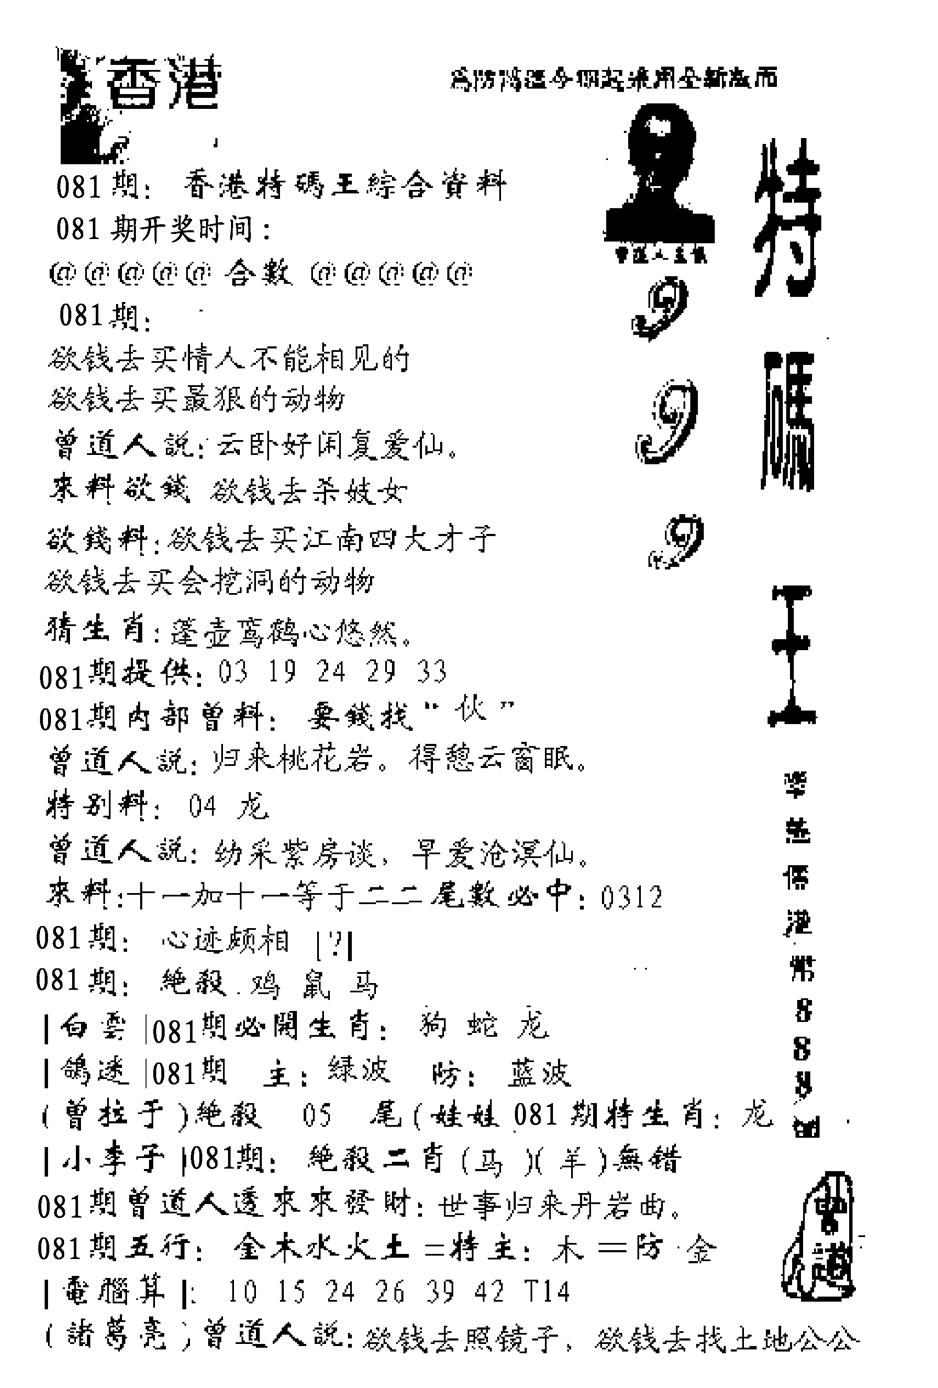 香港
為防偽造今期起采用全新版面
081期：香港特碼王綜合資料
081期开奖时间：
@@@@@合數@@@@@
081期：
欲钱去买情人不能相见的
欲钱去买最狠的动物
曾道人説：云卧好闲复爱仙。
來料欲錢 欲钱去杀妓女
欲錢料：欲钱去买江南四大才子
欲钱去买会挖洞的动物
猜生肖：蓬壶鸾鹤心悠然。
081期提供：03 19 24 29 33
081期内部曾料：要錢找“伙”
曾道人説：归来桃花岩。得憩云窗眠。
特别料：04 龙
曾道人説：幼采紫房谈，早爱沧溟仙。
來料：十一加十一等于二二尾數必中：0312
081期：心迹颇相 [?]
081期：絶殺.鸡 鼠 马
|白雲|081期必開生肖：狗 蛇 龙
|鴿迷|081期 主：绿波 防：蓝波
(曾拉于)絶殺 05 尾(娃娃081期特生肖：龙
|小李子|081期：絶殺二肖(马)(羊)無錯
081期曾道人透來來發財：世事归来丹岩曲。
081期五行：金木水火土=特主：木=防 金
|電腦算|：10 15 24 26 39 42 T14
(諸葛亮)曾道人説：欲钱去照镜子，欲钱去找土地公公
曾道人主编
9
9
9
特碼王
港幣888
曾道